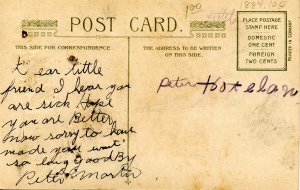 1884 100
100
POST CARD.
PLACE POSTAGE
STAMP HERE
DOMESTIC
ONE CENT
FOREIGN
TWO CENTS
PRINTED IN GERMANY
THIS SIDE FOR CORRESPONDENCE
THE ADDRESS TO BE WRITTEN
ON THIS SIDE.
Dear little
friend I hear you
are sick Hope
you are Better
now sorry to have
made you wait
so long good By
Peter Martin
Peter